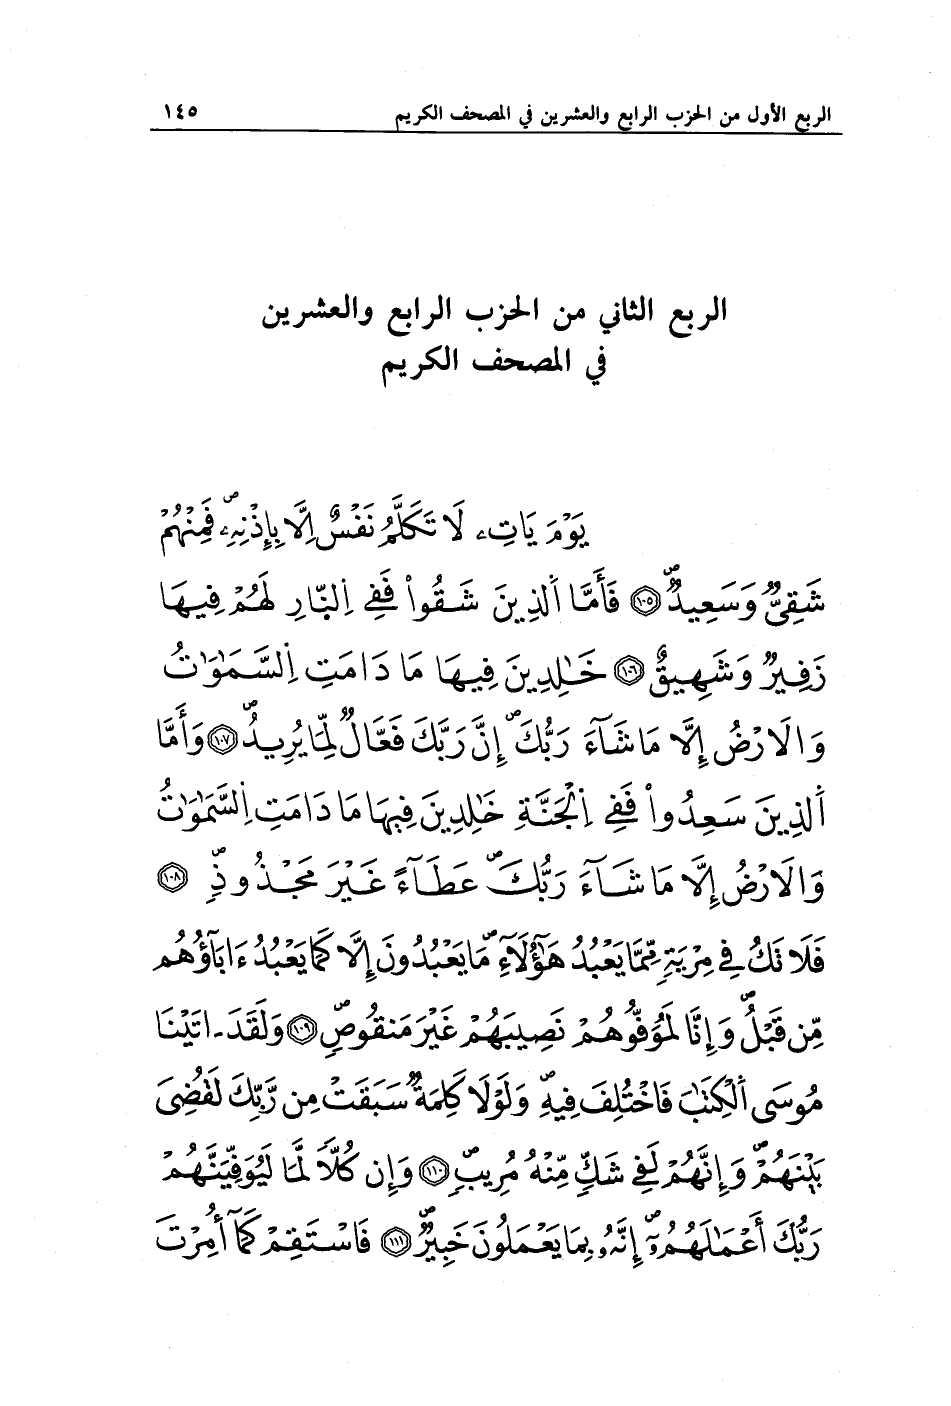 الربع الأول من الحزب الرابع والعشرين في المصحف الكريم ١٤٥
الربع الثاني من الحزب الرابع والعشرين
في المصحف الكريم
يَوْمَ يَاتِۦ لَا تَكَلَّمُ نَفْسٌ اِلَّا بِإِذْنِهِۦۖ فَمِنْهُمْ
شَقِىٌّ وَسَعِيدٌۖ ١٠٥ فَأَمَّا اَلذِينَ شَقُواْ فَفِے اِلنَّارِ لَهُمْ فِيهَا
زَفِيرٌ وَشَهِيقٌ ١٠٦ خَٰلِدِينَ فِيهَا مَا دَامَتِ اِلسَّمَٰوَٰتُ
وَالَارْضُ إِلَّا مَا شَآءَ رَبُّكَۖ إِنَّ رَبَّكَ فَعَّالٌ لِّمَا يُرِيدُۖ ١٠٧ وَأَمَّا
اَلذِينَ سَعِدُواْ فَفِے اِلْجَنَّةِ خَٰلِدِينَ فِيهَا مَا دَامَتِ اِلسَّمَٰوَٰتُ
وَالَارْضُ إِلَّا مَا شَآءَ رَبُّكَۖ عَطَآءً غَيْرَ مَجْذُوذٍۖ ١٠٨
فَلَا تَكُ فِے مِرْيَةٍ مِّمَّا يَعْبُدُ هَٰٓؤُلَآءِۖ مَا يَعْبُدُونَ إِلَّا كَمَا يَعْبُدُ ءَابَآؤُهُم
مِّن قَبْلُۖ وَإِنَّا لَمُوَفُّوهُمْ نَصِيبَهُمْ غَيْرَ مَنقُوصٍۖ ١٠٩ وَلَقَدَ ـ اتَيْنَا
مُوسَى اَلْكِتَٰبَ فَاخْتُلِفَ فِيهِۖ وَلَوْلَا كَلِمَةٌ سَبَقَتْ مِن رَّبِّكَ لَقُضِىَ
بَيْنَهُمْۖ وَإِنَّهُمْ لَفِے شَكٍّ مِّنْهُ مُرِيبٍۖ ١١٠ وَإِن كُلّاً لَّمَا لَيُوَفِّيَنَّهُمْ
رَبُّكَ أَعْمَٰلَهُمُۥٓۖ إِنَّهُۥ بِمَا يَعْمَلُونَ خَبِيرٌۖ ١١١ فَاسْتَقِمْ كَمَآ أُمِرْتَ